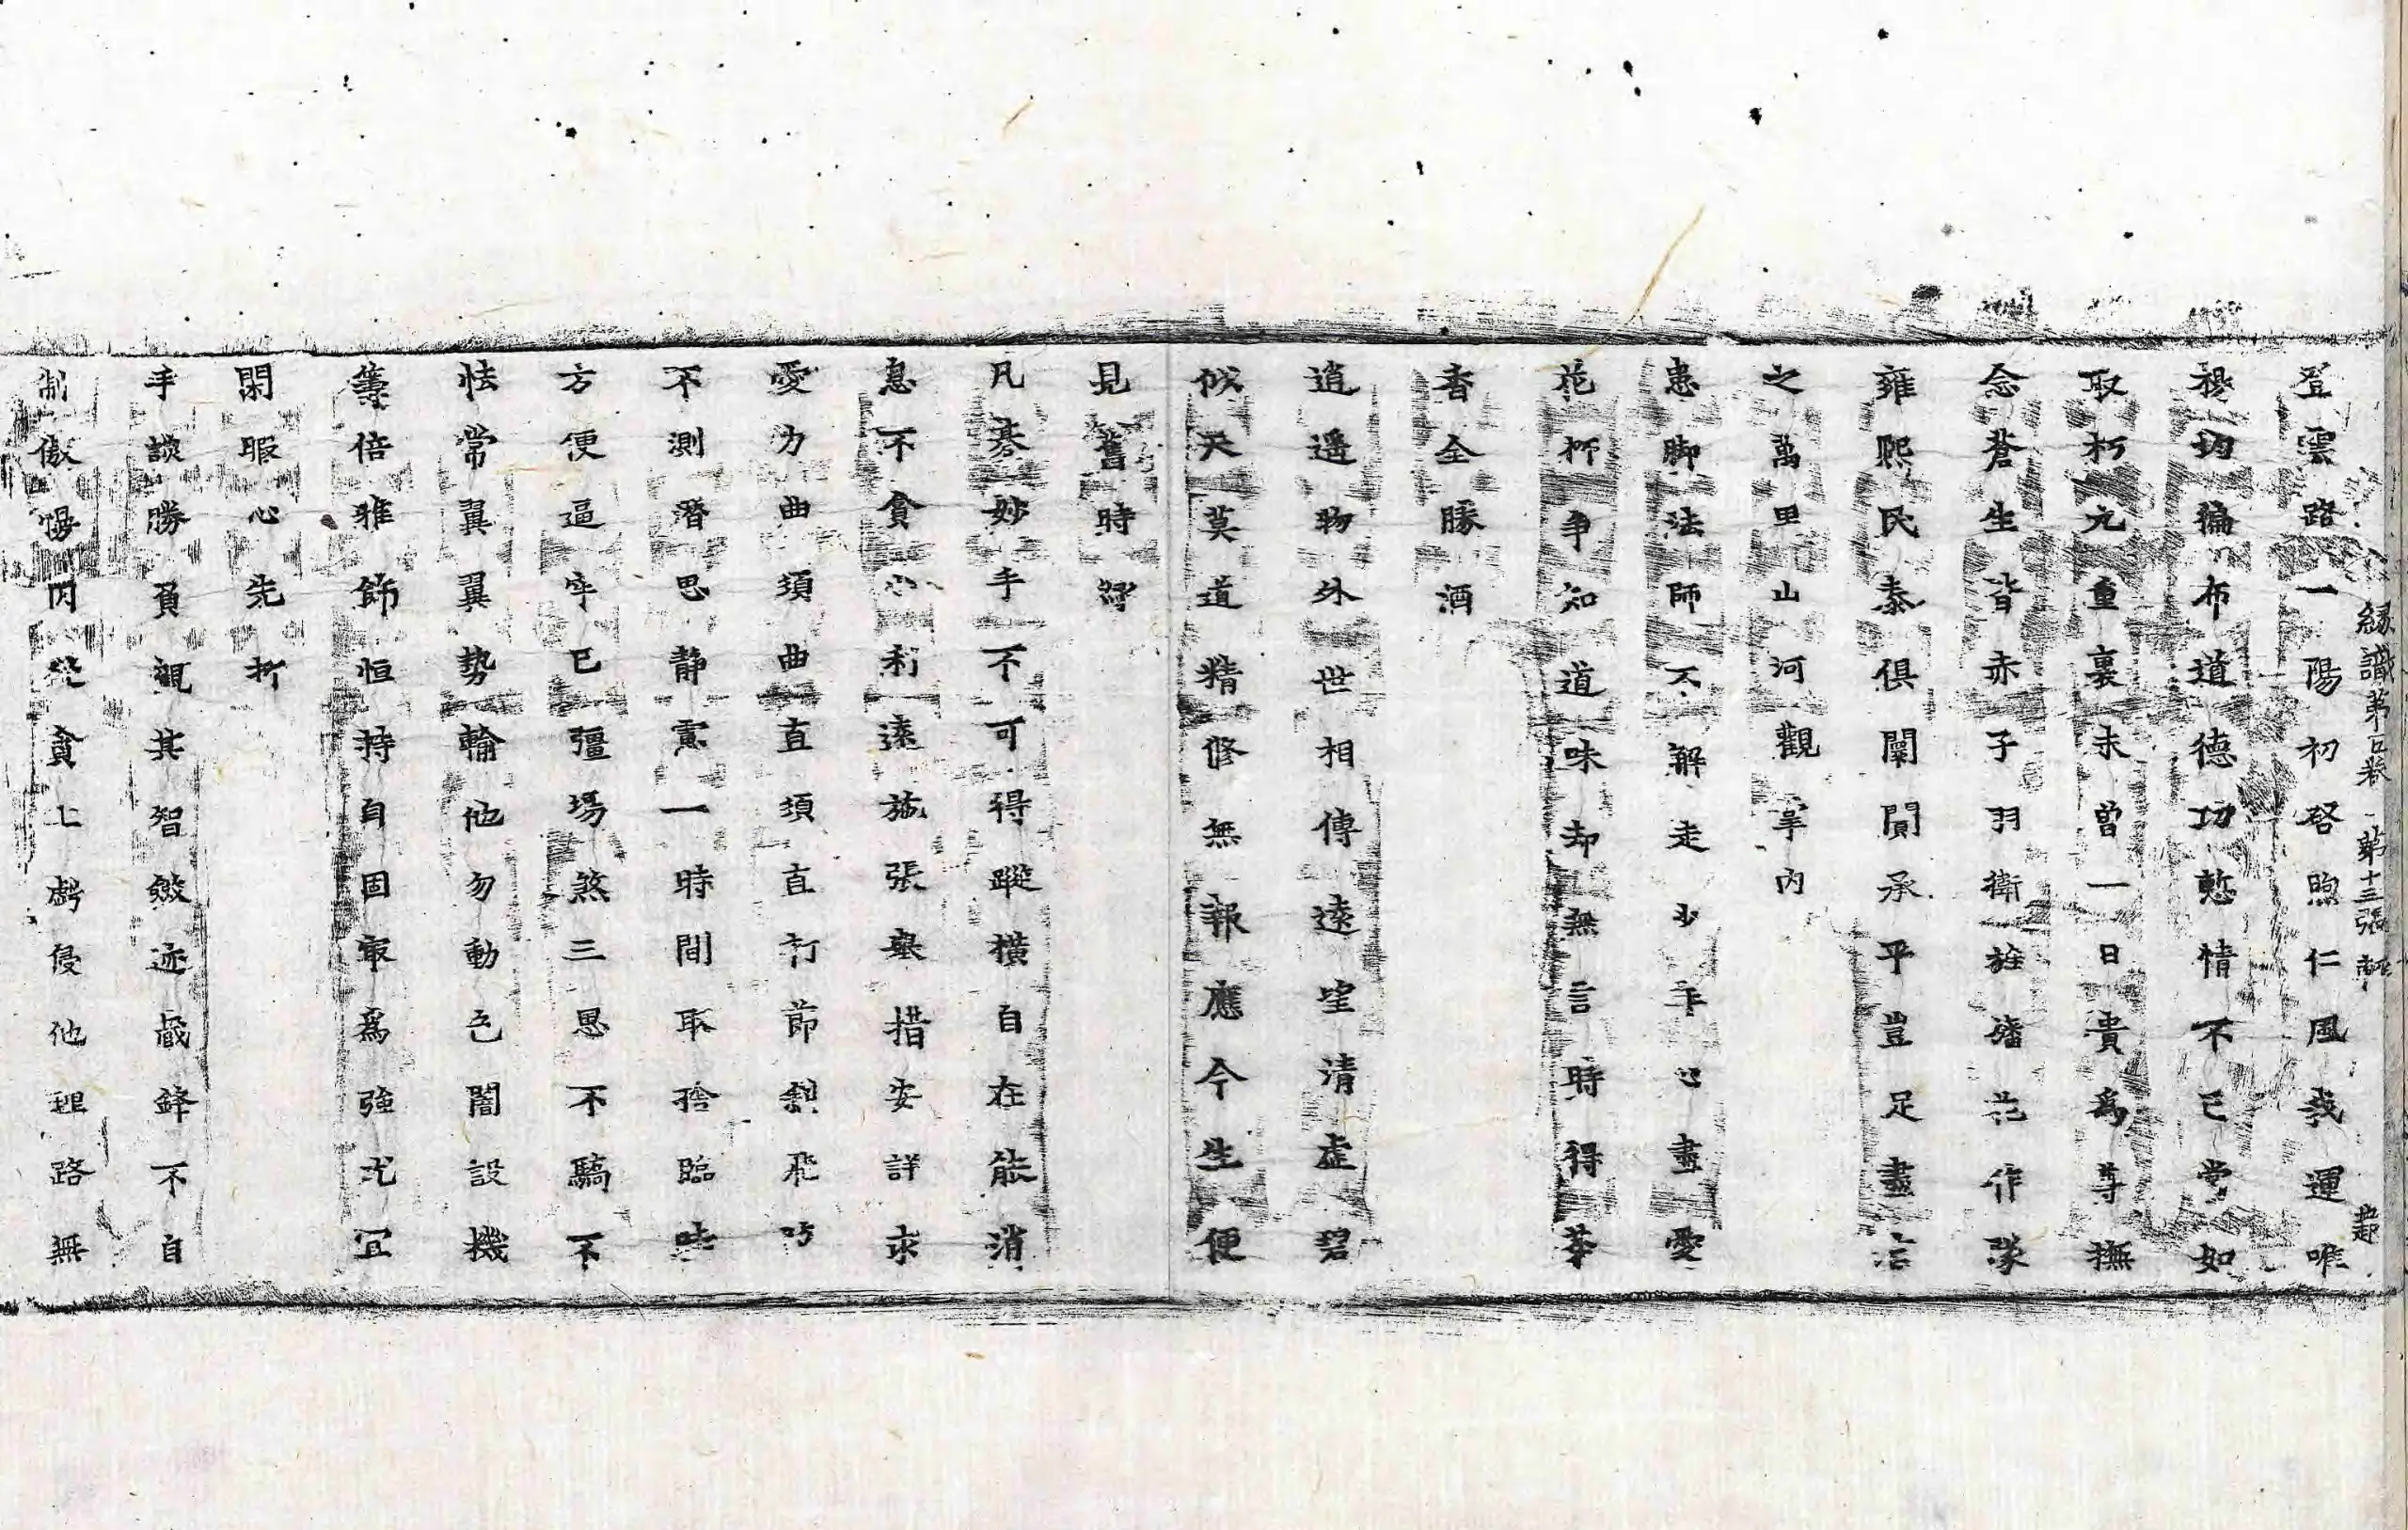 縁識第五卷 第十三張
登雲路一陽初啓煦仁風我運唯
穆均徧布道德功慙情不已常如
馭朽九重裏未曾一日貴爲尊撫
念蒼生皆赤子羽衛旌旛花作隊
雍熙民泰俱闐闐承平豈足盡
之萬里山河觀掌內
患脚法師不解走少年心盡愛
花柳爭知道味却無言時得莘
香全勝酒
逍遥物外世相傳遠望清虛碧
似天莫道精修無報應今生便
見舊時緣
凡棊妙手不可得蹤橫自在能消
息不貪小利遠施張舉措安詳求
愛力曲須曲直須直打節斜飛巧
不測潛思靜慮一時間取捨臨時
方便逼牢已彊場煞三思不驕不
怯常翼翼勢輸他勿動色闇設機
籌倍雅飾恒持自固最爲強尤冝
閑暇心先折
手談勝負觀其智斂迹藏鋒不自
制傲慢內 貪亡虧侵他理路無